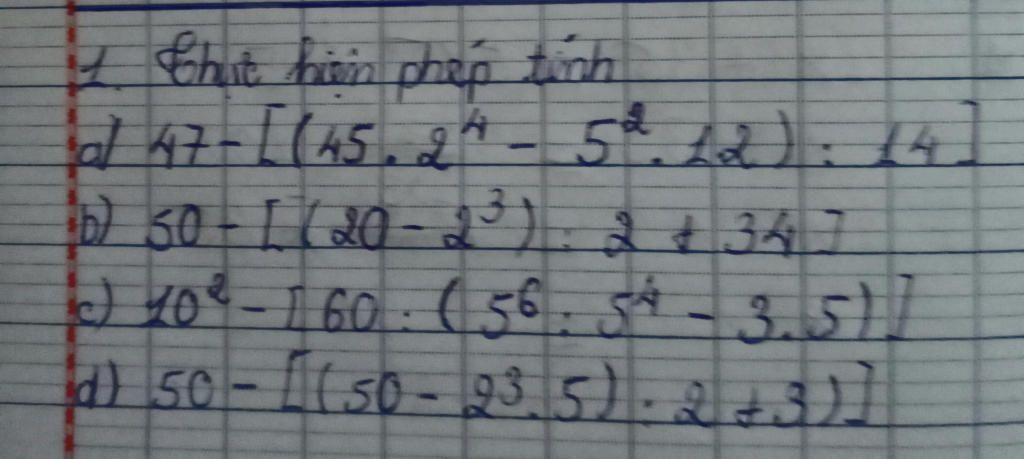 1. Thực hiện phép tính
a) 47 - [(45 . 2⁴ - 5² . 12) : 14]
b) 50 - [(20 - 2³) : 2 + 34]
c) 10² - [60 : (5⁶ : 5⁴ - 3 . 5)]
d) 50 - [(50 - 2³ . 5) : 2 + 3)]